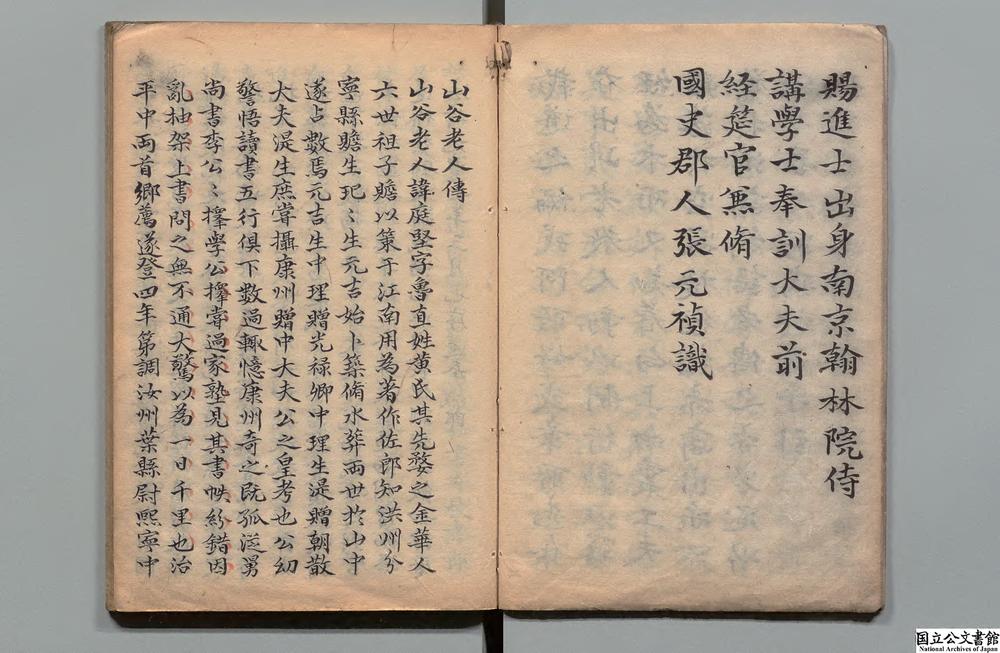 賜進士出身南京翰林院侍
講學士奉訓大夫前
経筵官無脩
國史郡人張元禎識
山谷老人傳
山谷老人諱庭堅字魯直姓黄氏其先婺之金華人
六世祖子贍以策干江南用為著作佐郎知洪州分
寧縣贍生玘〻生元吉始卜築脩水葬两世於山中
遂占數焉元吉生中理贈光禄卿中理生湜贈朝散
大夫湜生庶甞攝康州贈中大夫公之皇考也公幼
警悟讀書五行俱下數過輙憶康州奇之既孤從舅
尚書李公〻擇學公擇甞過家塾見其書帙紛錯因
亂抽架上書問之無不通大驚以為一日千里也治
平中両首郷薦遂登四年第調汝州葉縣尉熙寧中
国立公文書館
National Archives of Japan